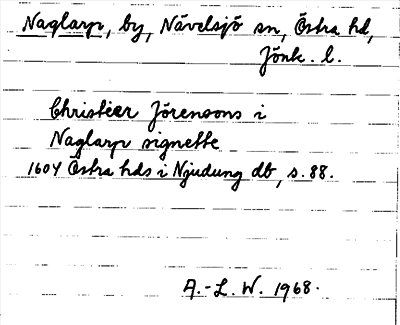 Naglarp, by, Nävelsjö sn, Östra hd,
Jönk. l.
Christær Jörensons i
Naglarp signette
1604 Östra hds i Njudung db, s. 88.
A.-L. W. 1968.